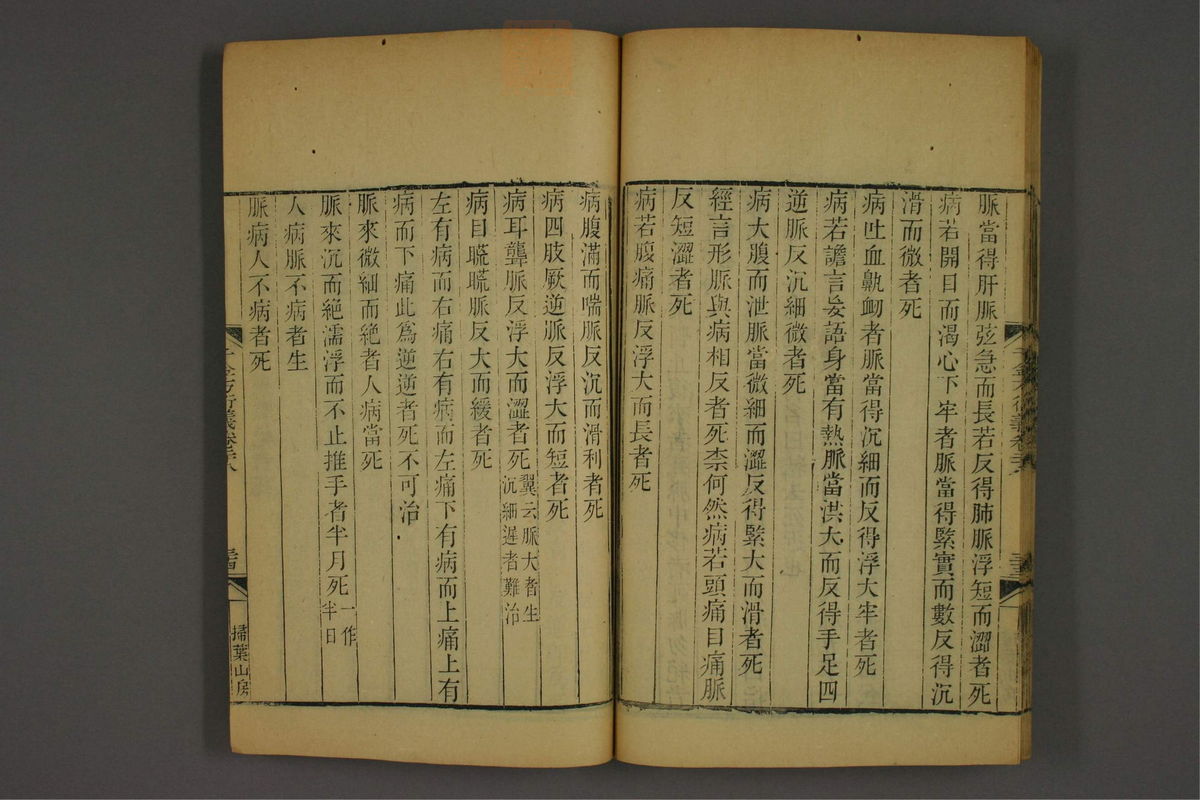 脈當得肝脈弦急而長若反得肺脈浮短而澀者死
病若開目而渴心下牢者脈當得緊實而數反得沉
滑而微者死
病吐血鼽衂者脈當得沉細而反得浮大牢者死
病若譫言妄語身當有熱脈當洪大而反得手足四
逆脈反沉細微者死
病大腹而泄脈當微細而澀反得緊大而滑者死
經言形脈與病相反者死柰何然病若頭痛目痛脈
反短澀者死
病若腹痛脈反浮大而長者死
病腹滿而喘脈反沉而滑利者死
病四肢厥逆脈反浮大而短者死
病耳聾脈反浮大而澀者死翼云脈大者生
沉細遲者難治
病目䀮䀮脈反大而緩者死
左有病而右痛右有病而左痛下有病而上痛上有
病而下痛此爲逆逆者死不可治
脈來微細而絶者人病當死
脈來沉而絕濡浮而不止推手者半月死一作
半日
人病脈不病者生
脈病人不病者死
千金方衍義卷二十八
掃葉山房